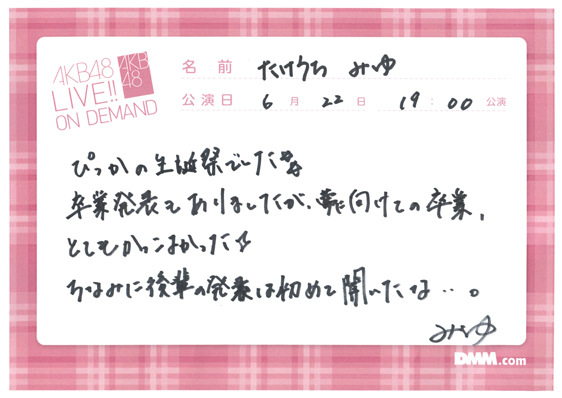 AKB48
LIVE!!
ON DEMAND
AKB
48
名前 たけうち みゆ
公演日 6月22日 19:00公演
ぴっかの生誕祭でした
卒業発表もありましたが、夢に向けての卒業、
とてもかっこよかった☆
ちなみに後輩の発表は初めて聞いたな…。
みゆ
DMM.com